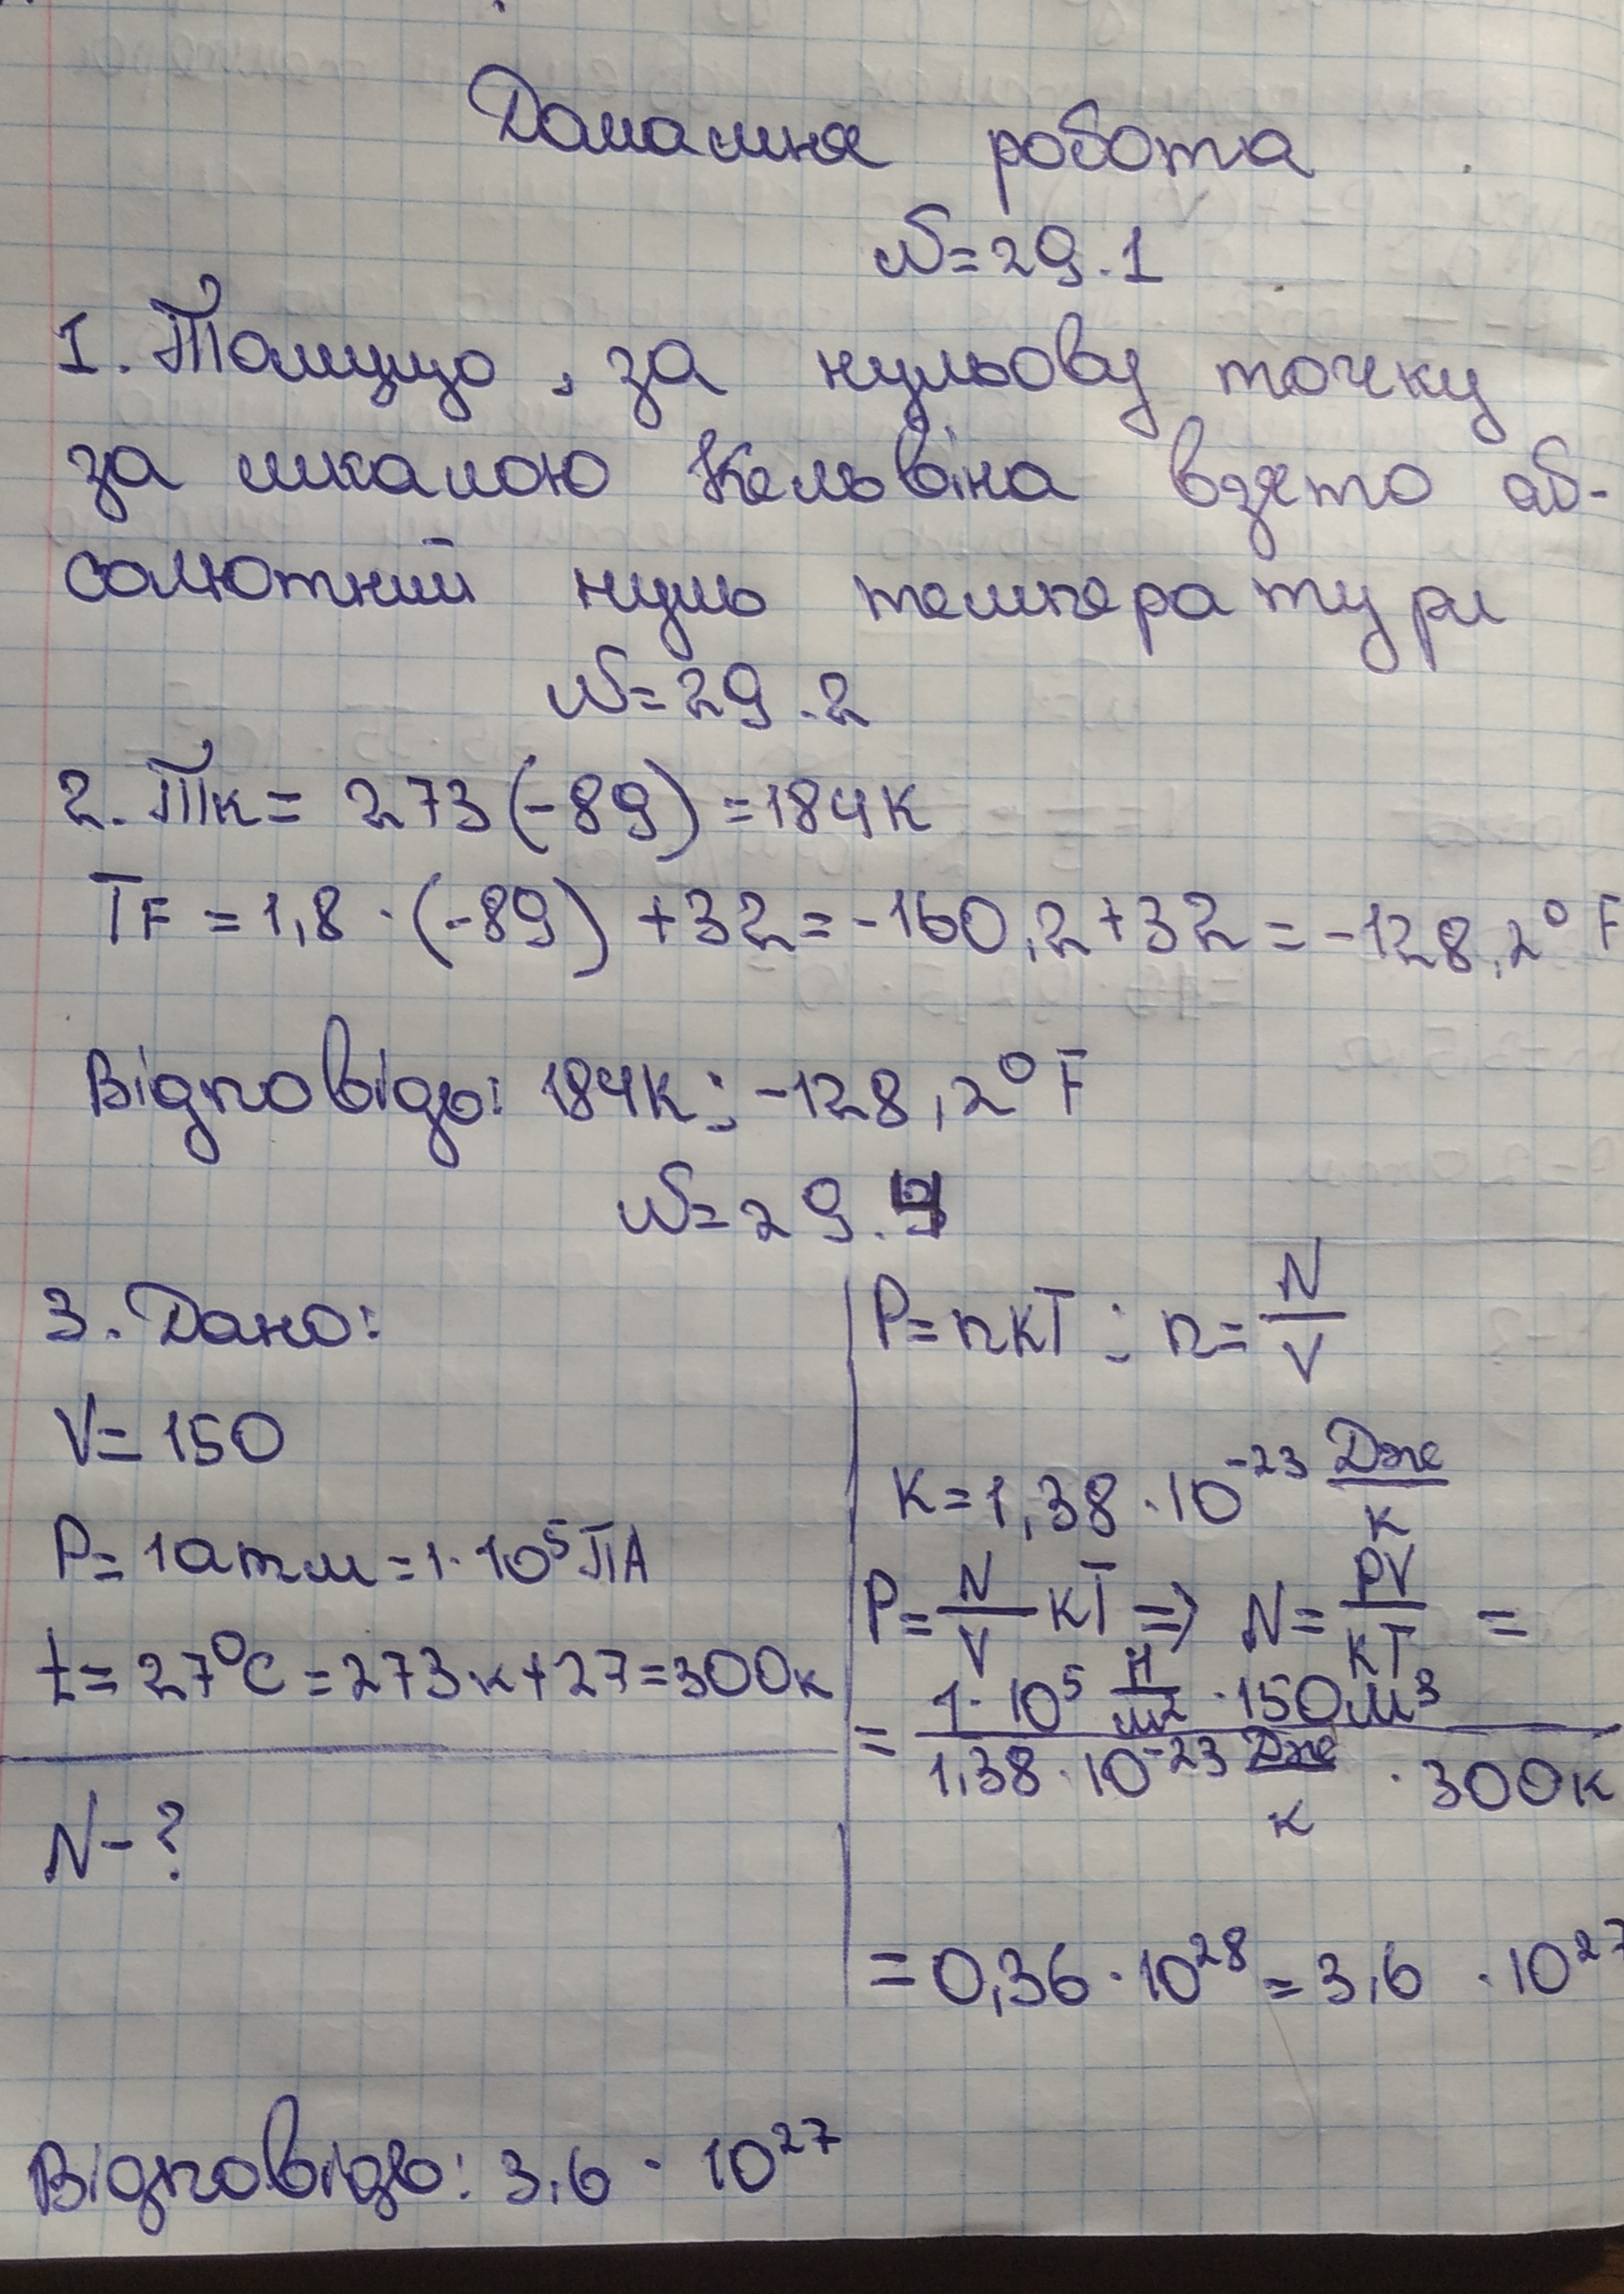 Домашня робота
№ 29.1
1. Тому що, за нульову точку
за шкалою Кельвіна взято аб-
солютний нуль температури
№ 29.2
2. Tк = 273 (-89) = 184К
TF = 1,8 · (-89) + 32 = -160,2 + 32 = -128,2° F
Відповідь: 184К; -128,2° F
№ 29.4
3. Дано:
V = 150
P = 1 атм = 1 · 10⁵ ПА
t = 27°C = 273к + 27 = 300к
N - ?
P = nкT; n = N/V
к = 1,38 · 10⁻²³ Дж/к
P = N/V кT => N = PV/кT =
= 1 · 10⁵ Н/м² · 150м³ / 1,38 · 10⁻²³ Дж/к · 300к
= 0,36 · 10²⁸ = 3,6 · 10²⁷
Відповідь: 3,6 · 10²⁷